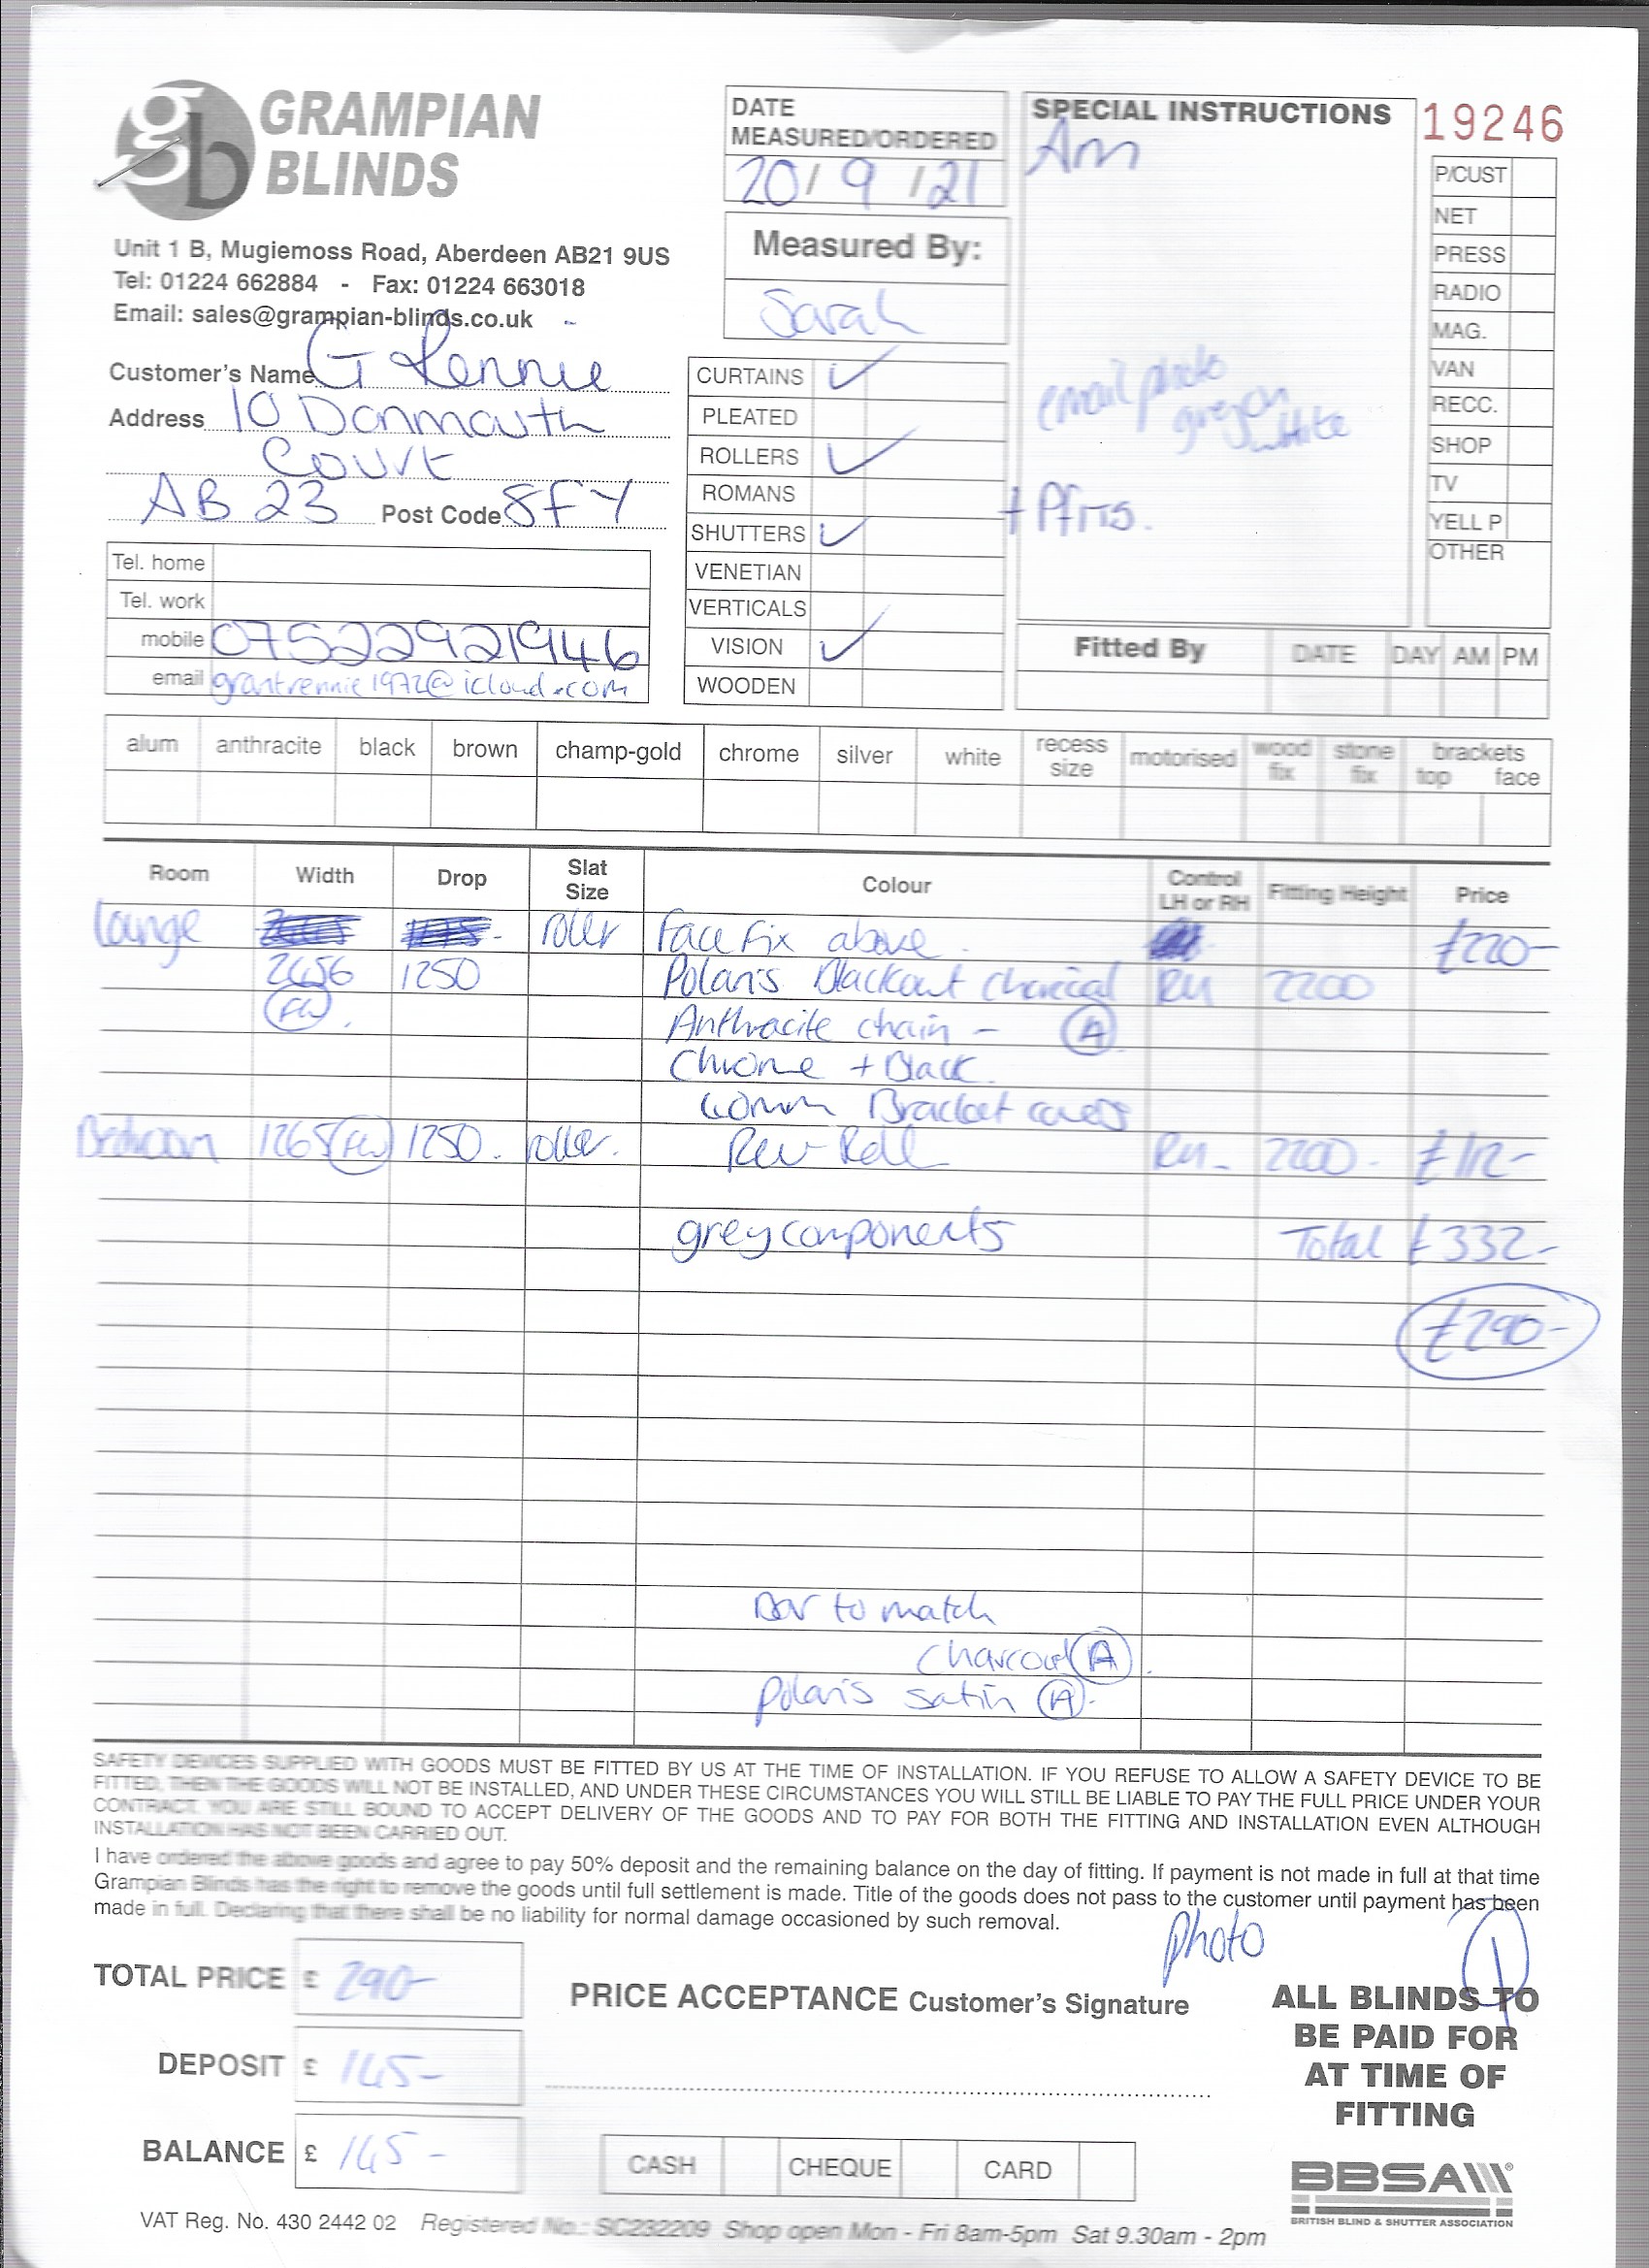 GRAMPIAN
BLINDS
Unit 1 B, Mugiemoss Road, Aberdeen AB21 9US
Tel: 01224 662884 - Fax: 01224 663018
Email: sales@grampian-blinds.co.uk
Customer's Name G Rennie
Address 10 Donmouth
Court
AB 23 Post Code 8FY
Tel. home
Tel. work
mobile 07522921946
email grantrennie1972@icloud.com
DATE
MEASURED/ORDERED
20/9/21
Measured By:
Sarah
CURTAINS ✓
PLEATED
ROLLERS ✓
ROMANS
SHUTTERS ✓
VENETIAN
VERTICALS
VISION ✓
WOODEN
SPECIAL INSTRUCTIONS
Am
email photo
grey on
white
19246
P/CUST
NET
PRESS
RADIO
MAG.
VAN
RECC.
SHOP
TV
YELL P
OTHER
Fitted By DATE DAY AM PM
alum anthracite black brown champ-gold chrome silver white recess size motorised wood fix stone fix brackets top face
Room Width Drop Slat Size Colour Control LH or RH Fitting Height Price
Lounge roller Face Fix above £220-
2656 1250 Polaris Blackout Charcoal RH 2200
(FW) Anthracite chain - (A)
Chrome + Black
40mm Bracket covers
Bedroom 1265 (FW) 1250 roller. Rev-Roll RH 2200 £112-
grey components Total £332-
£290-
Bar to match
Charcoal (A)
Polaris Satin (A)
SAFETY DEVICES SUPPLIED WITH GOODS MUST BE FITTED BY US AT THE TIME OF INSTALLATION. IF YOU REFUSE TO ALLOW A SAFETY DEVICE TO BE
FITTED, THEN THE GOODS WILL NOT BE INSTALLED, AND UNDER THESE CIRCUMSTANCES YOU WILL STILL BE LIABLE TO PAY THE FULL PRICE UNDER YOUR
CONTRACT. YOU ARE STILL BOUND TO ACCEPT DELIVERY OF THE GOODS AND TO PAY FOR BOTH THE FITTING AND INSTALLATION EVEN ALTHOUGH
INSTALLATION HAS NOT BEEN CARRIED OUT.
I have ordered the above goods and agree to pay 50% deposit and the remaining balance on the day of fitting. If payment is not made in full at that time
Grampian Blinds has the right to remove the goods until full settlement is made. Title of the goods does not pass to the customer until payment has been
made in full. Declaring that there shall be no liability for normal damage occasioned by such removal.
photo
TOTAL PRICE £ 290-
DEPOSIT £ 145-
BALANCE £ 145-
PRICE ACCEPTANCE Customer's Signature
CASH CHEQUE CARD
ALL BLINDS TO
BE PAID FOR
AT TIME OF
FITTING
BBSA
BRITISH BLIND & SHUTTER ASSOCIATION
VAT Reg. No. 430 2442 02 Registered No.: SC232209 Shop open Mon - Fri 8am-5pm Sat 9.30am - 2pm